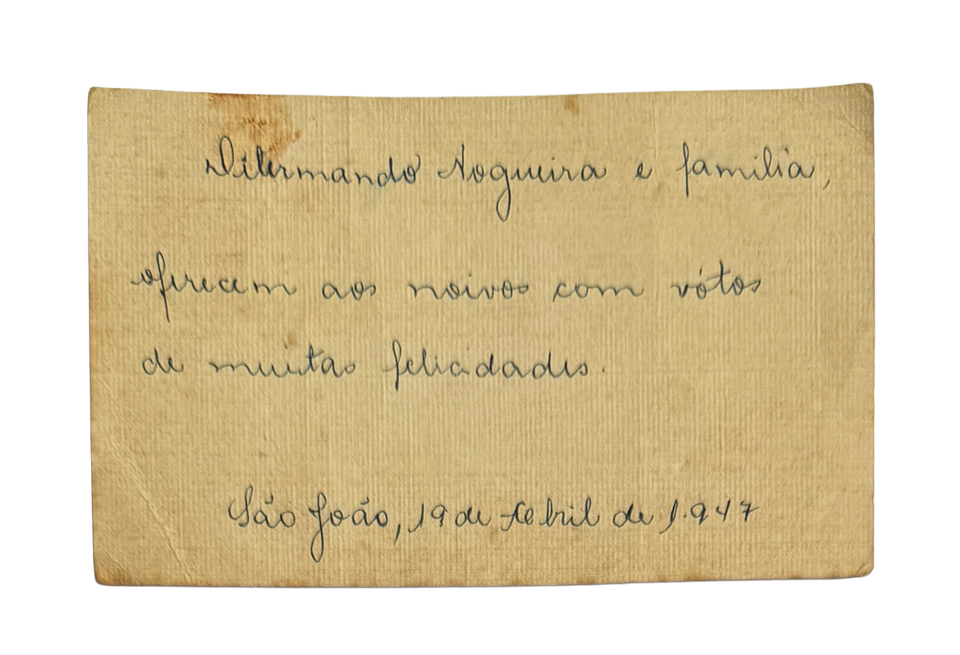 Dilermando Nogueira e familia,
oferecem aos noivos com vótos
de muitas felicidades.
São João, 19 de Abril de 1.947